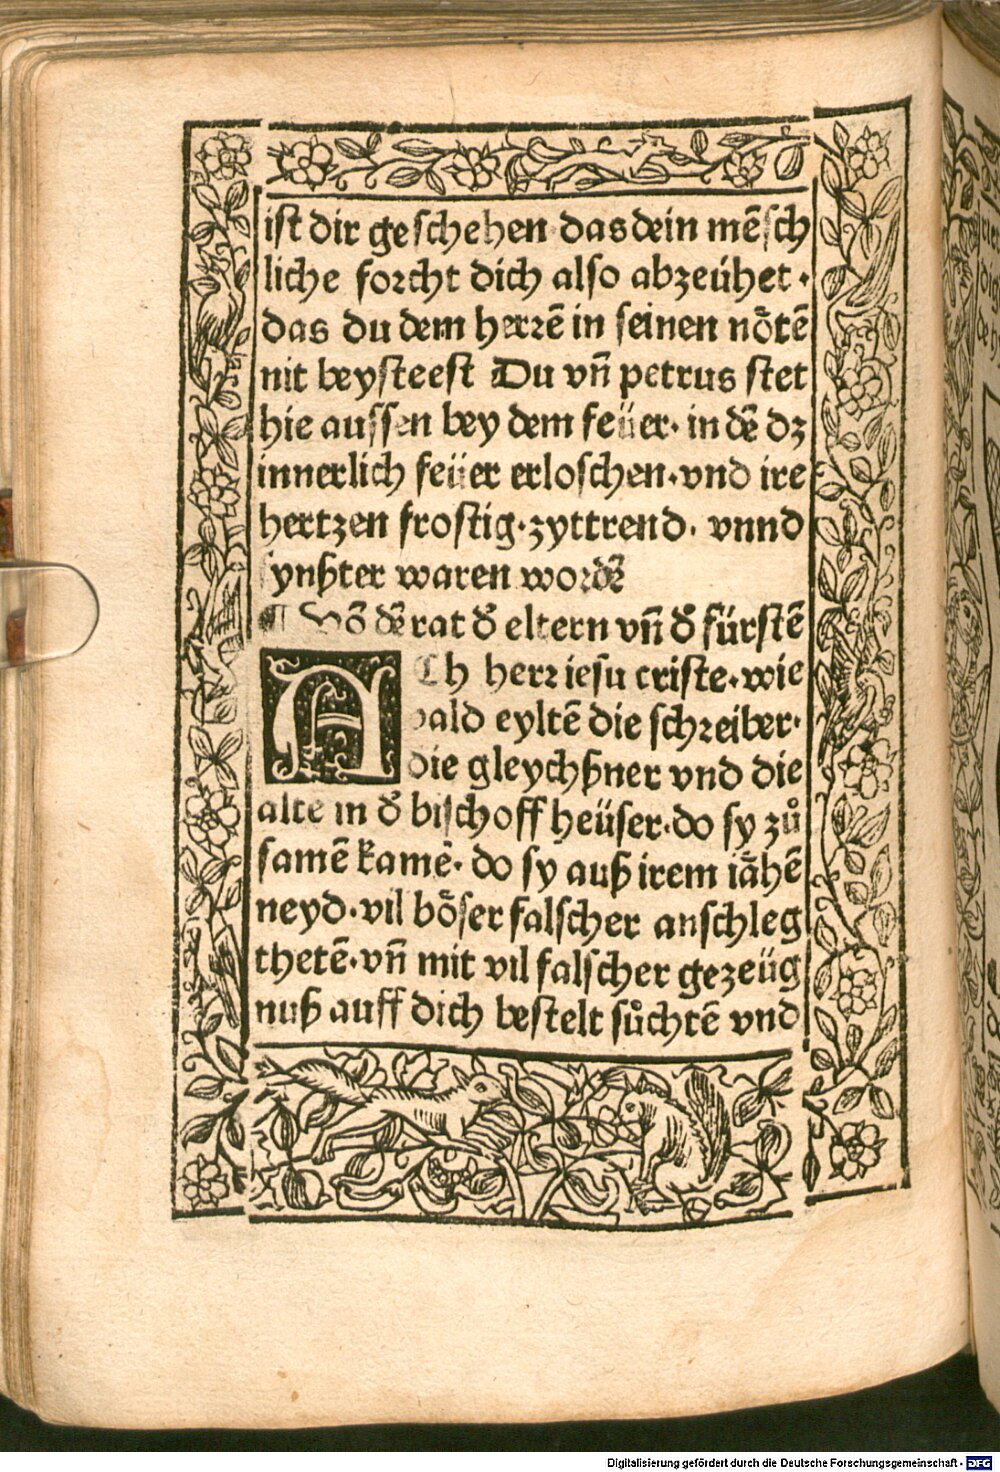 ist dir geschehen das dein mēsch
liche forcht dich also abzeühet·
das du dem herrē in seinen nȫtē
nit beysteest Du vn̄ petrus stet
hie aussen bey dem feüer· in dē dz
innerlich feüer erloschen·vnd ire
hertzen frostig·zyttrend· vnnd
fynßter waren wordē
¶ Võ dē rat d̕ eltern vn̄ d̕ fürstē
ACh herr iesu criste·wie
bald eyltē die schreiber·
die gleychßner vnd die
alte in d̕ bischoff heüser·do sy zů
samē kamē· do sy auß irem iåhē
neyd·vil böser falscher anschleg
thetē·vn̄ mit vil falscher gezeüg
nuß auff dich bestelt sůchtē vnd
Digitalisierung gefördert durch die Deutsche Forschungsgemeinschaft - DFG